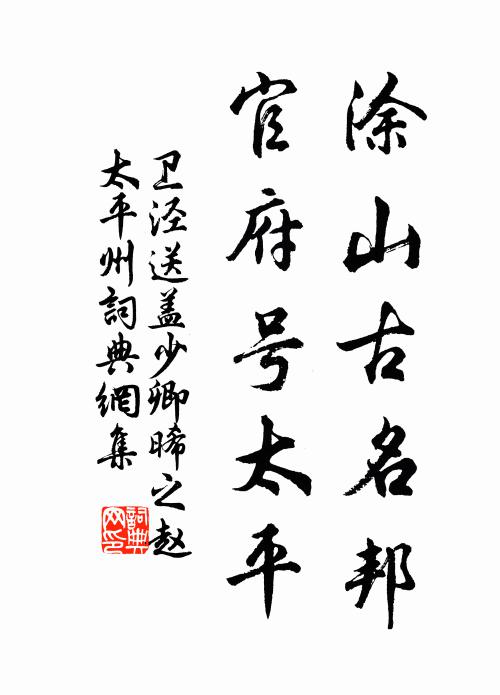 涂山古名邦
官府号太平
卫泾送盖少卿晞之赵
太平州詞典網集
詞典网印